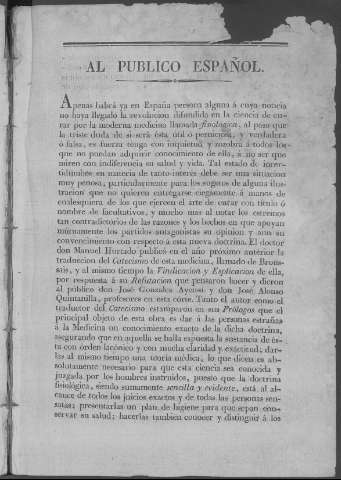 AL PUBLICO ESPAÑOL.
Apenas habrá ya en España persona alguna á cuya noticia
no haya llegado la revolucion difundida en la ciencia de cu-
rar por la moderna medicina llamada fisiológica, al paso que
la triste duda de si será ésta útil ó perniciosa, y verdadera
ó falsa, es fuerza tenga con inquietud y zozobra á todos los
que no puedan adquirir conocimiento de ella, á no ser que
miren con indiferencia su salud y vida. Tal estado de incer-
tidumbre en materia de tanto interés debe ser una situacion
muy penosa, particularmente para los sugetos de alguna ilus-
tracion que no quieren entregarse ciegamente á manos de
cualesquiera de los que ejercen el arte de curar con título ó
nombre de facultativos, y mucho mas al notar los extremos
tan contradictorios de las razones y los hechos en que apoyan
mútuamente los partidos antagonistas su opinion y aun su
convencimiento con respecto á esta nueva doctrina. El doctor
don Manuel Hurtado publicó en el año próximo anterior la
traduccion del Catecismo de esta medicina, llamado de Brous-
sais, y al mismo tiempo la Vindicacion y Esplicacion de ella,
por respuesta á su Refutacion que pensaron hacer y dieron
al público don José Gonzalez Ayensa y don José Alonso
Quintanilla, profesores en esta córte. Tanto el autor como el
traductor del Catecismo estamparon en sus Prólogos que el
principal objeto de esta obra es dar á las personas estrañas
á la Medicina un conocimiento exacto de la dicha doctrina,
asegurando que en aquella se halla espuesta la sustancia de és-
ta con órden lacónico y con mucha claridad y exactitud; dar-
las al mismo tiempo una teoría médica, lo que dicen es ab-
solutamente necesario para que esta ciencia sea conocida y
juzgada por los hombres instruidos, puesto que la doctrina
fisiológica, siendo sumamente sencilla y evidente, está al al-
cance de todos los juicios exactos y de todas las personas sen-
satas; presentarlas un plan de higiene para que sepan con-
servar su salud; hacerlas tambien conocer y distinguir á los